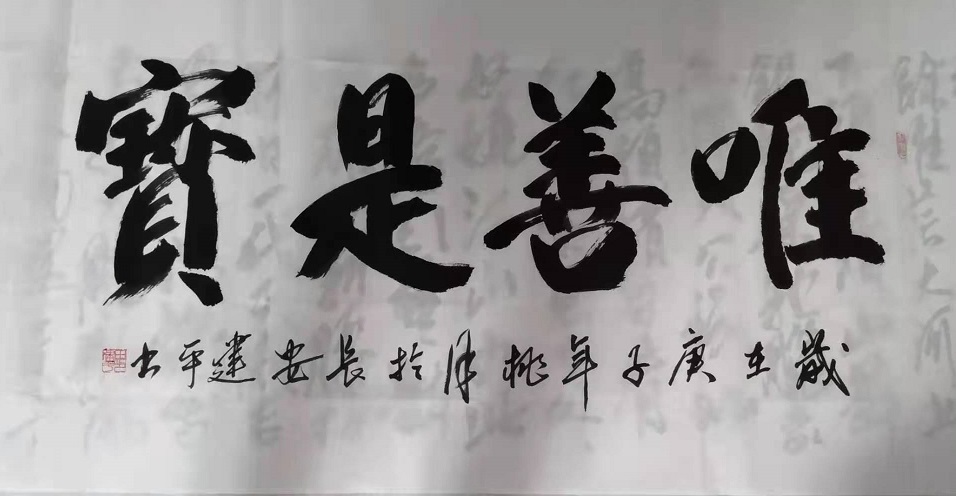 唯善是寶
歲在庚子年桃月於長安建平书